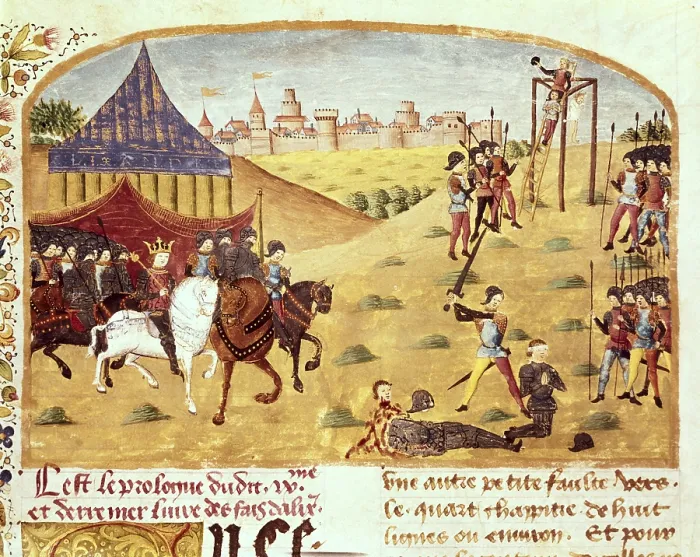 LISAND
Cest le prologue dudit. vme
et derremer liure des fais dalix.
une autre petite faulte vers
le quart chappitre de huit
lignes ou enuiron. Et pour